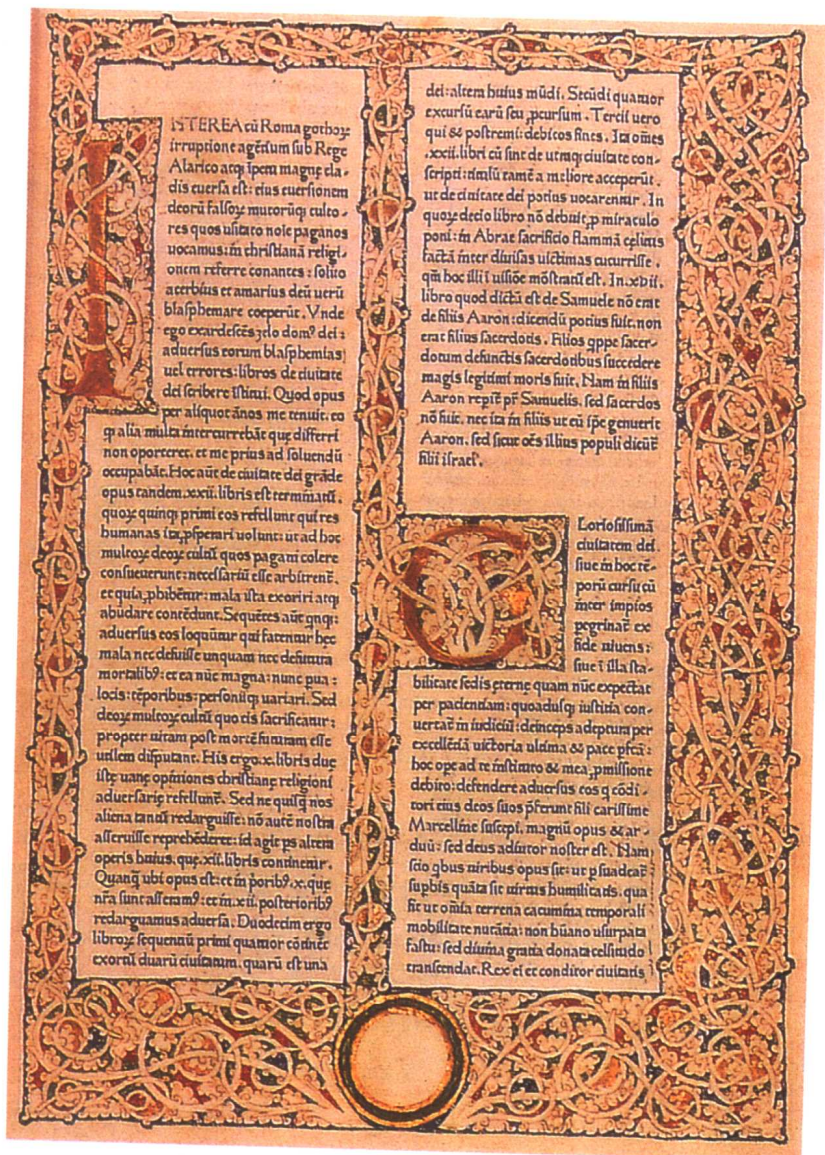 INTEREA cū Roma gothoꝝ
irruptione agētium sub Rege
Alarico atqꝫ īpetu magnę cla-
dis euersa est: eius euersionem
deorū falsoꝝ multorūqꝫ culto-
res quos usitato noīe paganos
uocamus: in christianā religi-
onem referre conantes: solito
acerbius et amarius deū uerū
blasphemare coeperūt. Vnde
ego exardescēs zelo domꝰ dei:
aduersus eorum blasphemias
uel errores: libros de ciuitate
dei scribere īstitui. Quod opus
per aliquot ānos me tenuit. eo
ꝙ alia multa intercurrebāt quę differri
non oporteret. et me prius ad soluendū
occupabāt. Hoc aūt de ciuitate dei grāde
opus tandem .xxii. libris est terminatū.
quoꝝ quinqꝫ primi eos refellunt qui res
humanas ita ꝓsperari uolunt: ut ad hoc
multoꝝ deoꝝ cultū quos pagani colere
consueuerunt: necessariū esse arbitrent̄.
et quia ꝓhibēnt̄: mala ista exoriri atqꝫ
abūdare contēdunt. Sequētes aūt qnqꝫ:
aduersus eos loquūtur qui fatentur hęc
mala nec defuisse unquam nec defutura
mortalibꝰ: et ea nūc magna: nunc pua:
locis: tēporibus: personisqꝫ uariari. Sed
deoꝝ multoꝝ cultū quo eis sacrificatur:
propter uitam post mortē futuram esse
utilem disputant. His ergo .x. libris duę
istę uanę opiniones christianę religioni
aduersarię refellunt̄. Sed ne quisꝗ nos
aliena tantū redarguisse: nō autē nostra
asseruisse reprehēderet: id agit ps altera
operis huius. quę .xii. libris continetur.
Quanꝗ ubi opus est: et in p̄oribꝰ .x. que
nr̄a sunt asseramꝰ: et in .xii. posterioribꝰ
redarguamus aduersa. Duodecim ergo
libroꝝ sequentiū primi quatuor cōtinēt
exortū duarū ciuitatum. quarū est una
dei: altera huius mūdi. Secūdi quatuor
excursū earū seu ꝓcursum. Tercii uero
qui & postremi: debitos fines. Ita om̄es
.xxii. libri cū sint de utraqꝫ ciuitate con-
scripti: titulū tamē a meliore acceperūt.
ut de ciuitate dei potius uocarentur. In
quoꝝ decio libro nō debuit ꝓ miraculo
poni: in Abrae sacrificio flammā cęlitus
factā inter diuisas uictimas cucurrisse.
qm̄ hoc illi ī uisiōe mōstratū est. In .xvii.
libro quod dictū est de Samuele nō erat
de filiis Aaron: dicendū potius fuit. non
erat filius sacerdotis. Filios qppe sacer-
dotum defunctis sacerdotibus succedere
magis legitimi moris fuit. Nam in filiis
Aaron repīt̄ pr̄ Samuelis. sed sacerdos
nō fuit. nec ita in filiis ut eū ip̄e genuerit
Aaron. sed sicut oēs illius populi dicūt̄
filii israel'.
Gloriosissimā
ciuitatem dei.
siue in hoc tē-
porū cursu cū
inter impios
pegrinat̄ ex
fide uiuens:
siue ī illa sta-
bilitate sedis ęternę quam nūc expectat
per pacientiam: quoadusqꝫ iustitia con-
uertat̄ in iudiciū: deinceps adeptura per
excellētiā uictoria ultima & pace pfcā:
hoc ope ad te īnstituto & mea ꝓmissione
debito: defendere aduersus eos q cōdi-
tori eius deos suos p̄ferunt fili carissime
Marcelline suscepi. magnū opus & ar-
duū: sed deus adiutor noster est. Nam
scio qbus uiribus opus sit: ut psuadeat̄
supbis quāta sit uirtus humilitatis. qua
fit ut om̄ia terrena cacumina temporali
mobilitate nutātia: non hūano usurpata
fastu: sed diuina gratia donata celsitudo
transcendat. Rex ei et conditor ciuitatis